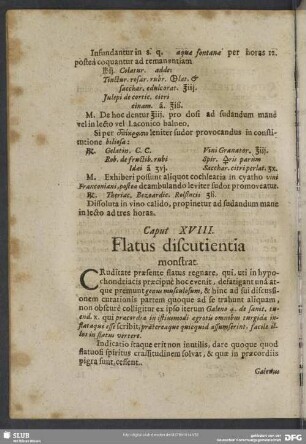 Infundantur in a. q. aquæ fontanæ per horas 12.
posteà coquantur ad remanentiam
Colatur. adde:
Tinctur. rosar. rubr.
sacchar. edulcorat.
Julepi de cortic. citri
cinam.
M. De hoc dentur pro dosi ad sudandum manè
vel in lecto vel Laconico balneo.
Si per leniter sudor provocandus in consti-
tutione biliosa:
Gelatin. C. C. Vini Granator.
Rob. de fructib. rubi Spir. partim
Idæi Sacchar. citri perlat.
M. Exhiberi possunt aliquot cochlearia in cyatho vini
Franconiani, postea deambulando leniter sudor promoveatur.
Theriac. Bezoardic.
Dissoluta in vino calido, propinetur ad sudandum manè
in lecto ad tres horas.
Caput XVIII.
Flatus discutientia
monstrat.
CRuditate præsente flatus regnare, qui, uti in hypo-
chondriacis præcipuè hoc evenit, defatigant
atque premunt genus musculosum, & hinc ad sui discussi-
onem curationis partem quoque ad se trahunt aliquam,
non obscurè colligitur ex ipso iterum Galeno
x. qui præcordia in istiusmodi agrotis omnibus turgida in-
flataque esse scribit, prætereaque quicquid assumserint, facile
in flatus vertere.
Indicatio itaque erit non inutilis, dare quoque quod
flatuosi spiritus crassitudinem solvat, & quæ in præcordiis
pigra sunt, cessent.
Galenus
SLUB
DFG